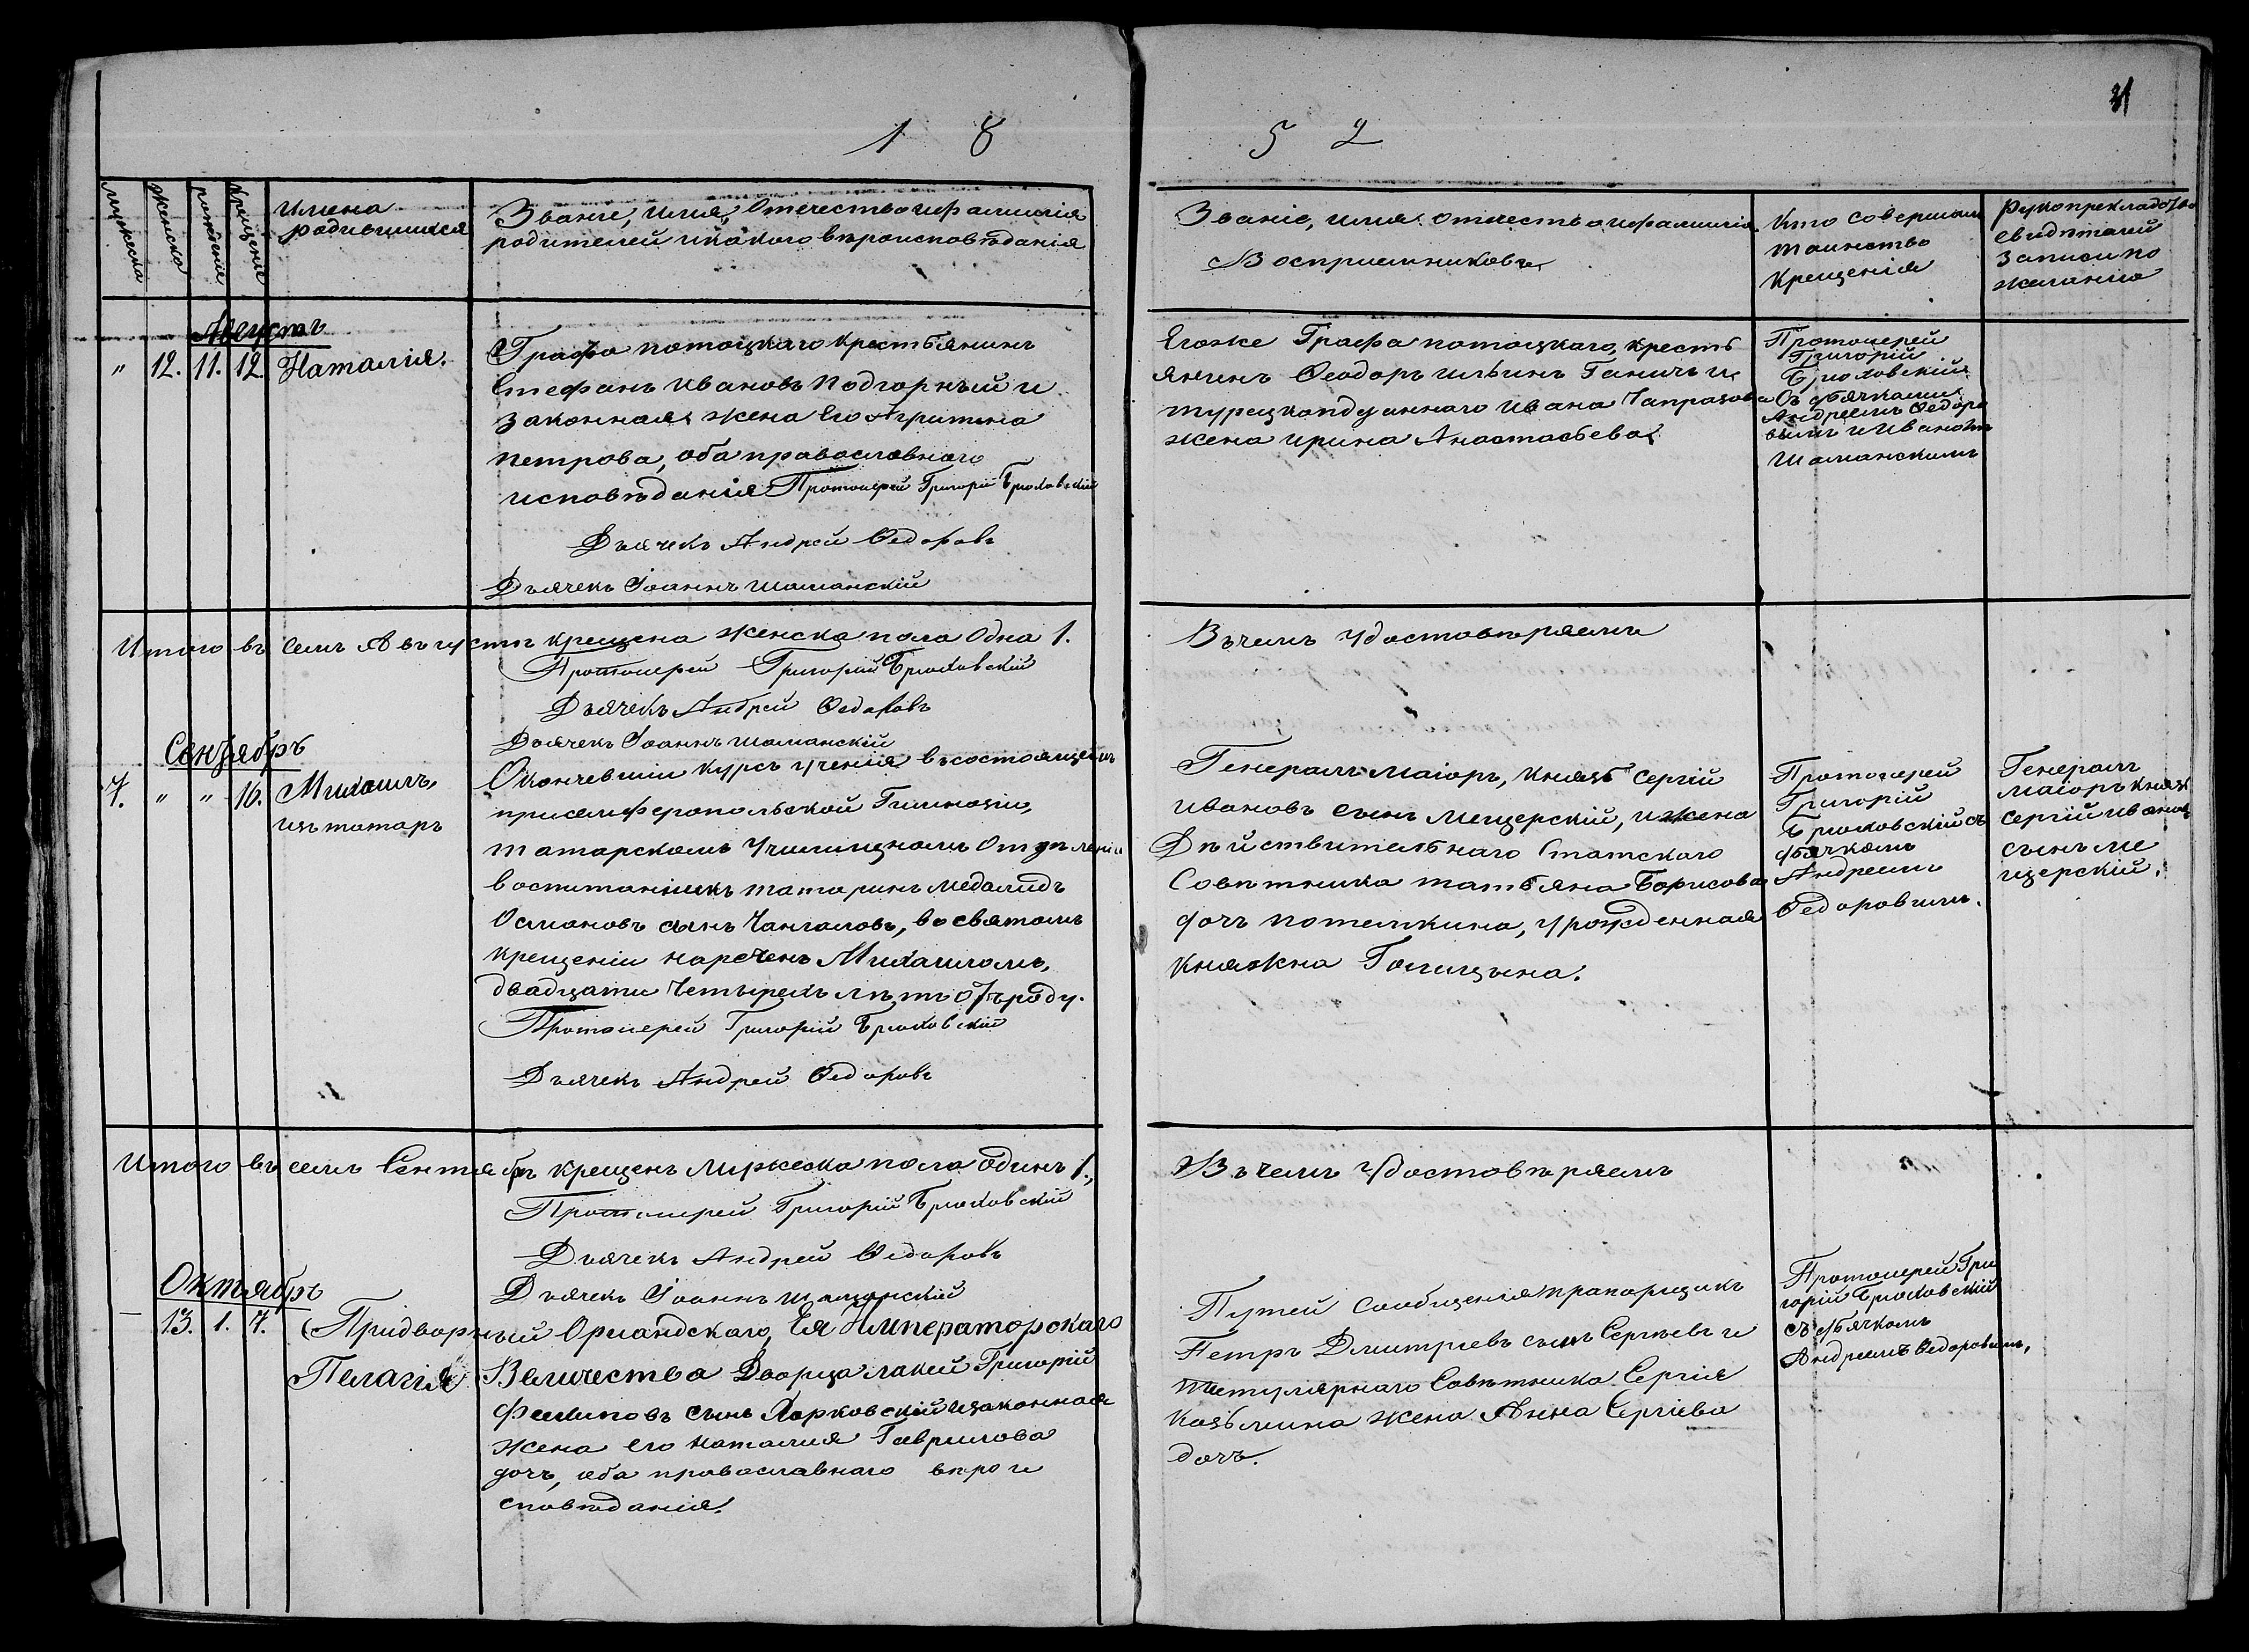 31
1 8 5 2
мужеска
женска
рожденіе
крещеніе
имена
родившихся
Званіе, имя, Отечество и фамилія
родителей и какого вѣроисповѣданія
Званіе, имя, отечество и фамилія
Воспріемниковъ
Кто совершалъ
таинство
Крещенія
Рукоприкладство
свидѣтелей
записи по
желанію
Августъ
" 12. 11. 12. Наталія.
Графа потоцкаго крестьянинъ
Стефанъ Ивановъ Подгорный и
законная жена Его Агрипина
петрова, оба православнаго
исповѣданія Протоіерей Григорій Брюховскій
Дьячекъ Андрей Федоровъ
Дьячекъ Іоаннъ Шаманскій
Егоже Графа потоцкаго, кресть
янинъ Феодоръ ильинъ Ганичъ и
турецкоподданнаго Ивана Чапразова
жена ирина Анастасьева
Протоіерей
Григорій
Брюховскій
Съ дьячками
Андреемъ Федоро
вымъ и Иваномъ
Шаманскимъ
Итого въ семъ Августѣ крещена женска пола Одна 1.
Протоіерей Григорій Брюховскій
Дьячекъ Андрей Федоровъ
Дьячекъ Іоаннъ Шаманскій
Въ чемъ удостовѣряемъ
Сентябрь
7. " " 16. Михаилъ,
изъ татаръ
Окончевшіи курсъ ученія въ состоящемъ
при симферопольской Гимназіи,
татарскомъ Училищномъ Отделеніи
воспитанникъ татаринъ Медалидъ
Османовъ сынъ Чангаловъ, во святомъ
крещеніи нареченъ Михаиломъ,
двадцати четырехъ лѣтъ отъ роду.
Протоіерей Григорій Брюховскій
Дьячекъ Андрей Федоровъ
Генералъ маіоръ, князь Сергій
Ивановъ сынъ Мещерскій, и жена
Дѣйствительнаго Статскаго
Совѣтника татьяна Борисова
дочъ потемкина, урожденная
Княжна Голицына.
Протоіерей
Григорій
Брюховскій съ
дьячкомъ
Андреемъ
Федоровымъ.
Генералъ
маіоръ князь
Сергій Ивановъ
сынъ ме
щерскій.
Итого въ семъ Сентябрѣ крещенъ Мужеска пола Одинъ 1.,
Протоіерей Григорій Брюховскій
Дьячекъ Андрей Федоровъ
Дьячекъ Іоаннъ Шаманскій
Въ чемъ удостовѣряемъ
Октябрь
— 13. 1. 7.
Придворный Орiандскаго, Ея Императорскаго
Пелагія Величества Дворца лакей Григорій
Филиповъ сынъ Харковскій и законная
жена его Наталия Гаврилова
дочъ, оба православнаго вѣрои
споведанія.
Путей сообщенія прапорщикъ
Петръ Дмитріевъ сынъ Сергѣевъ и
титулярнаго Совѣтника Сергія
Козьмина жена Анна Сергіева
дочъ.
Протоіерей Гри
горій Брюховскій
съ дьячкомъ
Андреемъ Федоровымъ,